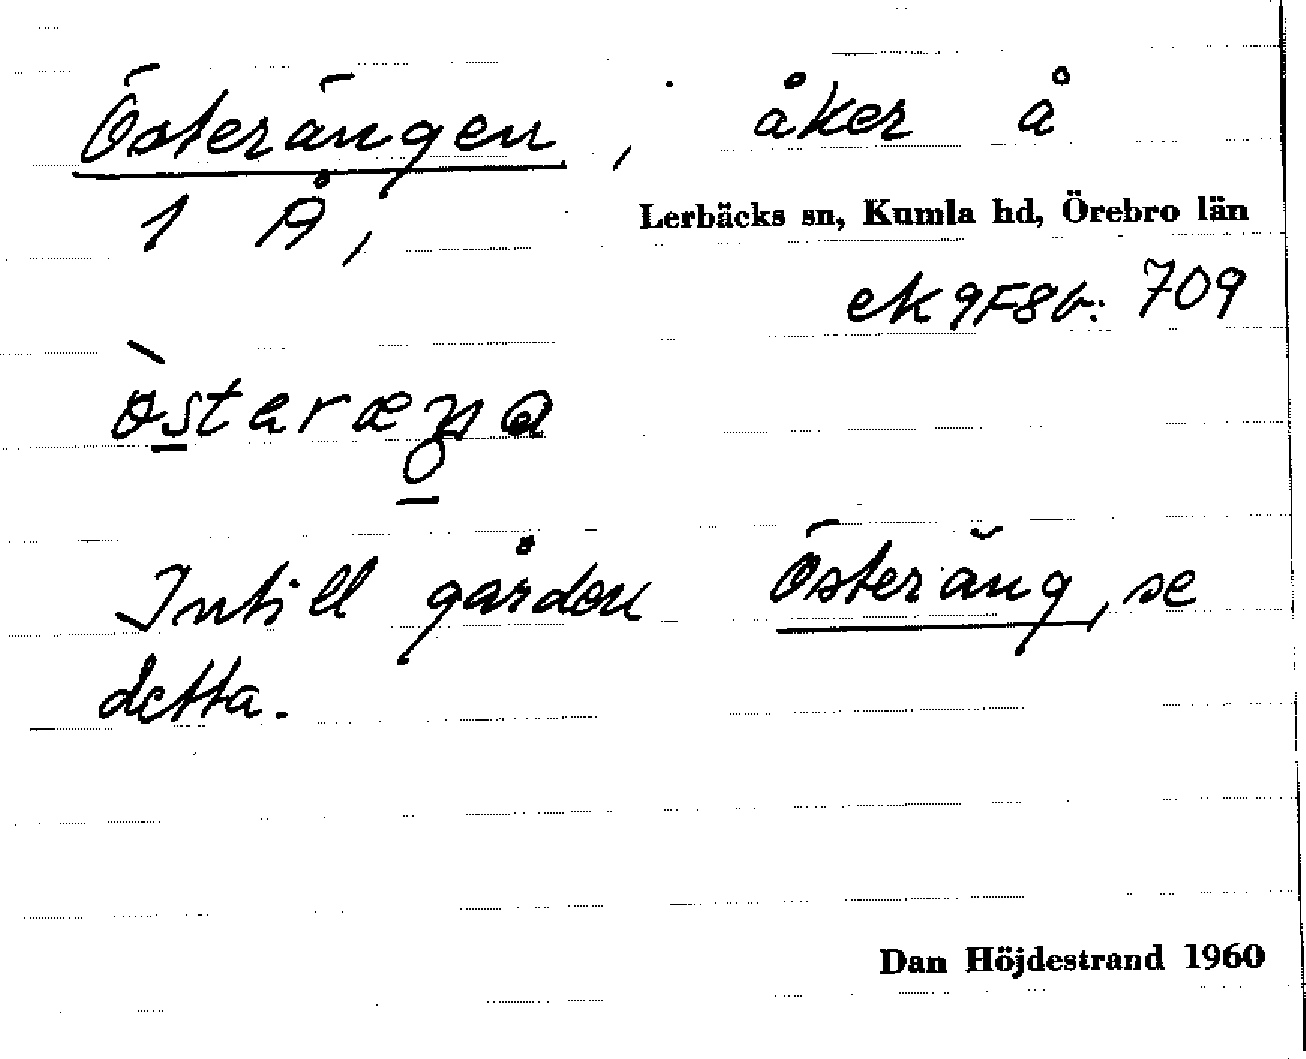 Österängen, åker å
1 Å,
Lerbäcks sn, Kumla hd, Örebro län
ek 9F8b: 709
Intill gården Österäng, se
detta.
Dan Höjdestrand 1960